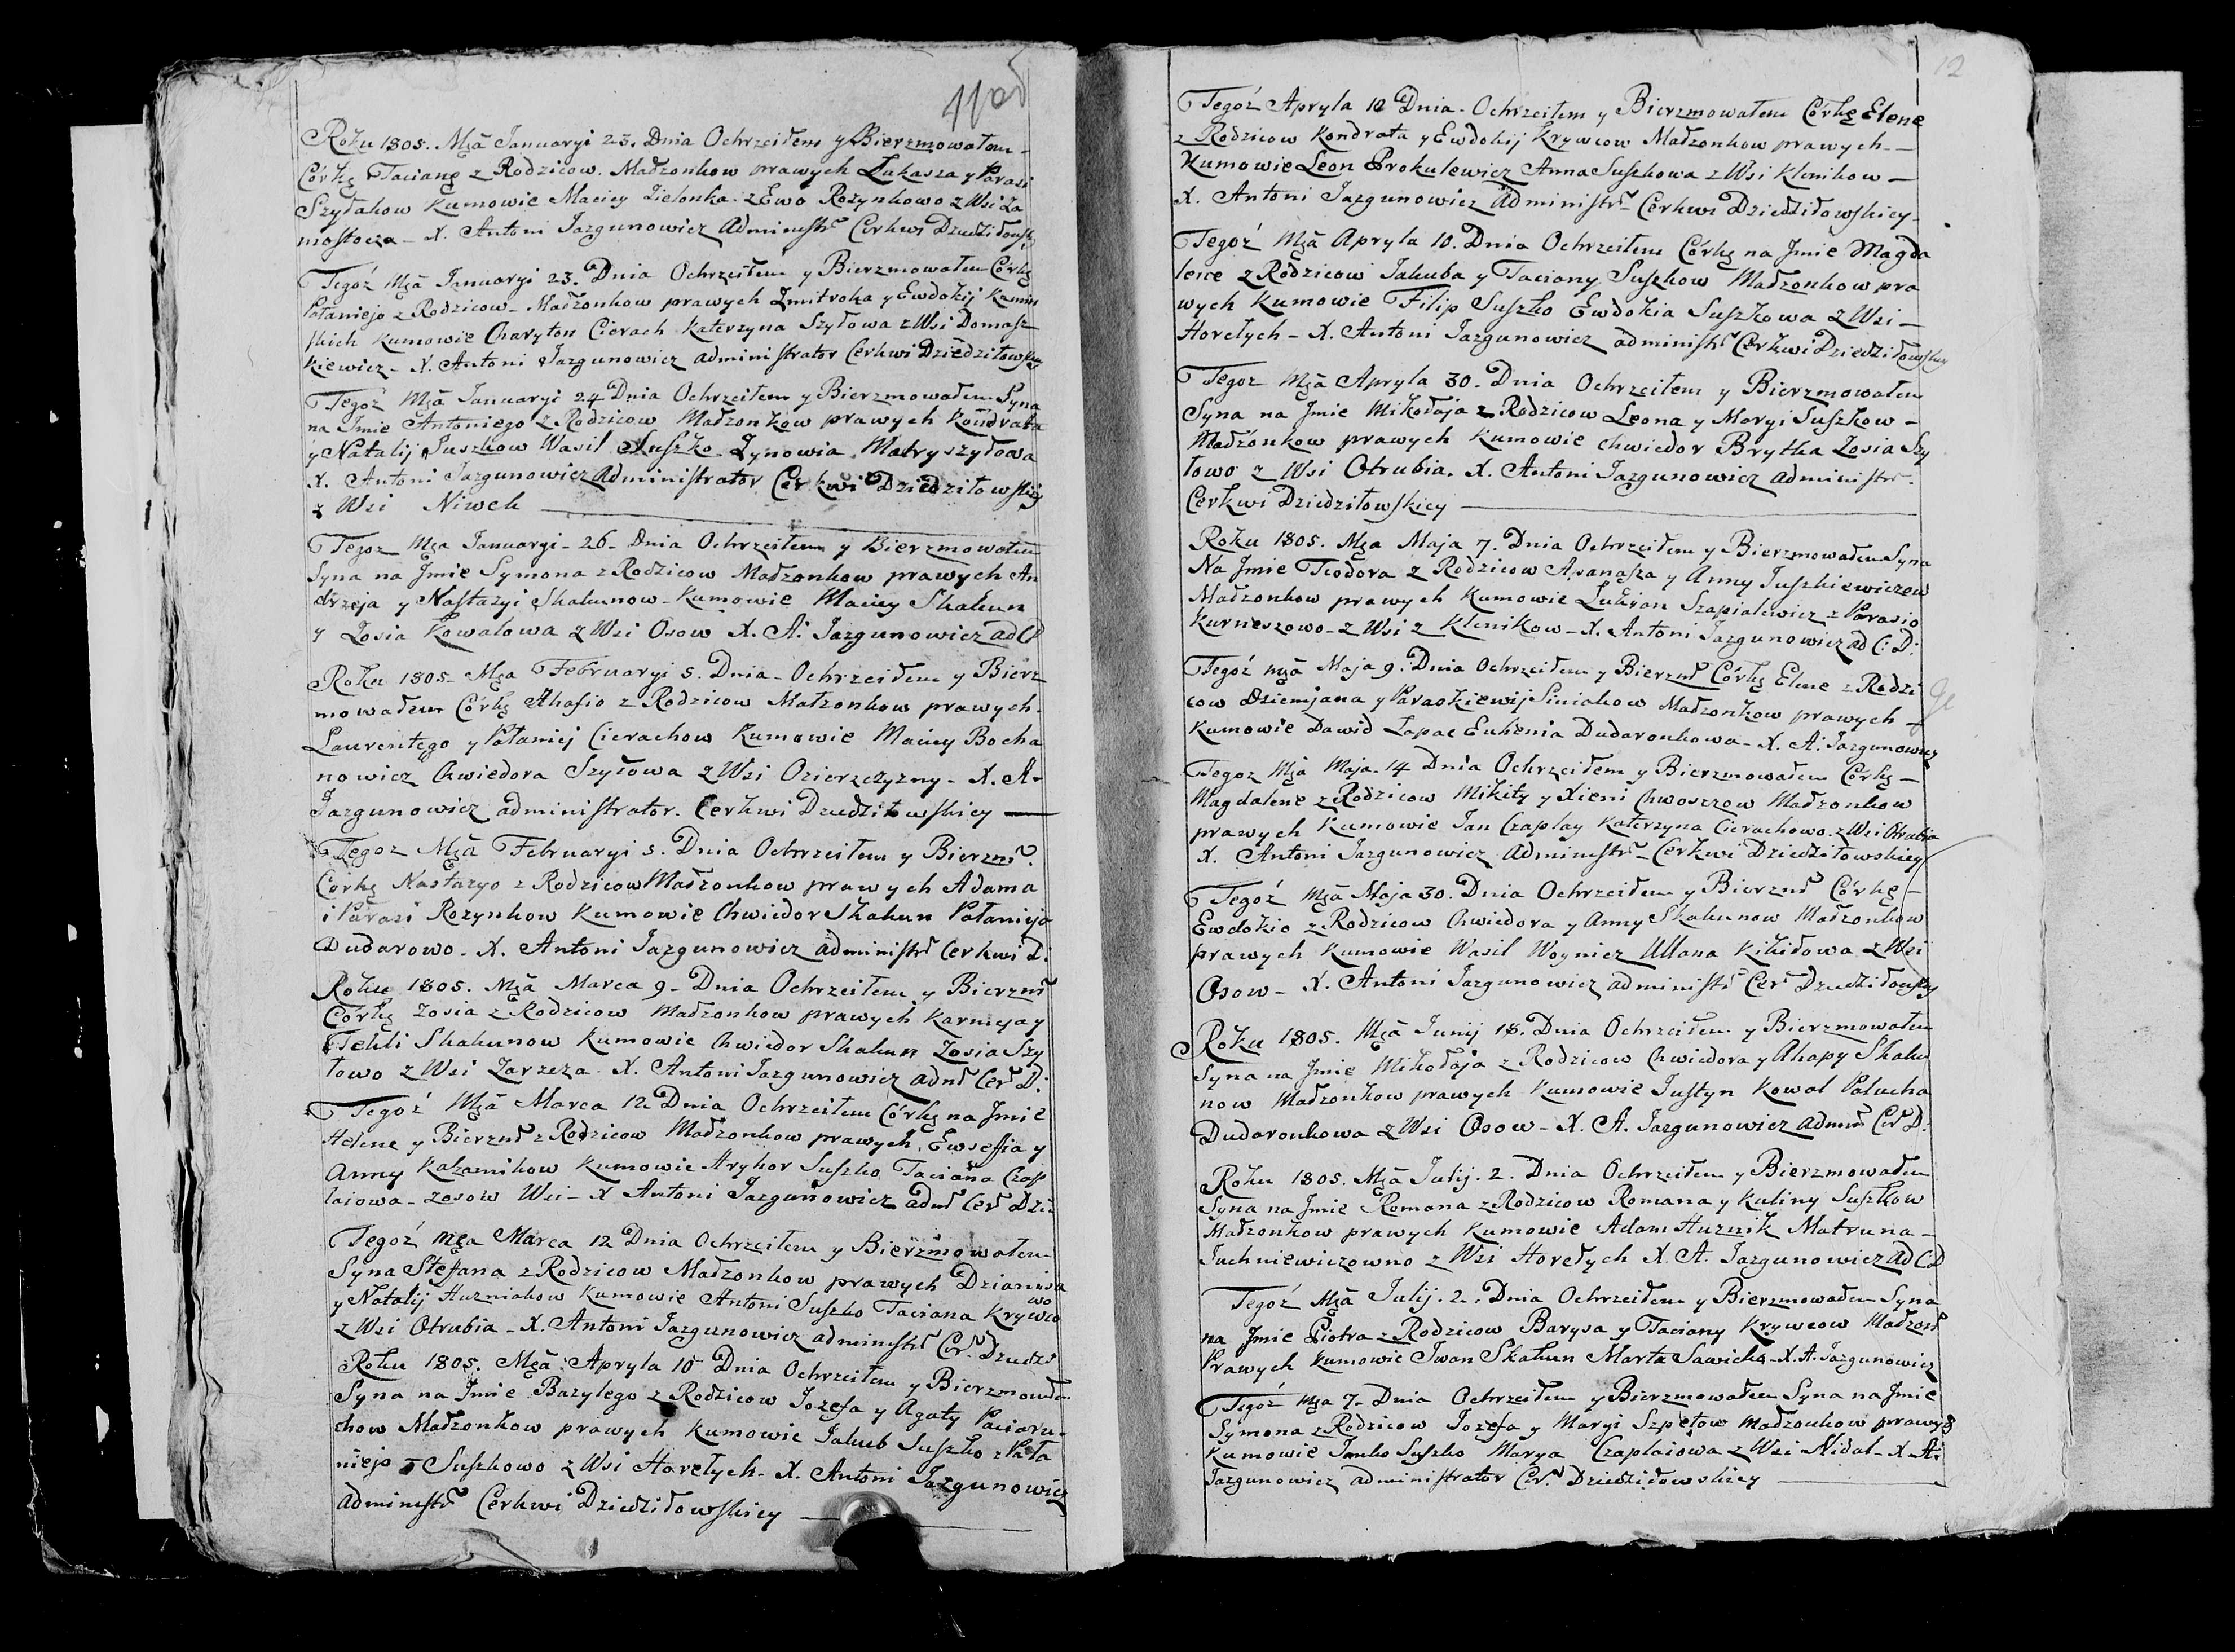 11 od
Roku 1805. Mca Januaryi 23. Dnia Ochrzciłem y Bierzmowałem
Córkę Tacianę z Rodzicow Małżonkow prawych Łukasza y Parasi
Szyłakow Kumowie Maciey Zielonka z Ewo Rożynkowo z Wsi Za
mostocza - X. Antoni Jazgunowicz Administr Cerkwi Dziedziłowsk
Tegoż Mca Januaryi 23. Dnia Ochrzciłem y Bierzmowałem Córkę
Połaniejo z Rodzicow Małżonkow prawych Zmitroka y Ewdokij Kamin
skich Kumowie Charyton Cierach Katerzyna Szyłowa z Wsi Domasz
kiewicz - X. Antoni Jazgunowicz administrator Cerkwi Dziedziłowskiey
Tegoż Mca Januaryi 24 Dnia Ochrzciłem y Bierzmowałem Syna
na Jmie Antoniego z Rodzicow Małżonkow prawych Kondrata
y Natalij Suszkow Wasil Suszko Zynowia Matryszyłowa
X. Antoni Jazgunowicz Administrator Cerkwi Dziedziłowskiey
z Wsi Niwek
Tegoz Mca Januaryi - 26 - Dnia Ochrzciłem y Bierzmowałem
Syna na Jmie Symona z Rodzicow Małżonkow prawych An
drzeja y Nastazyi Skakunow - Kumowie Maciey Skakun
y Zosia Kowalowa z Wsi Osow X. A. Jazgunowicz ad C D
Roku 1805 - Mca Februaryi 5. Dnia - Ochrzciłem y Bierz
mowałem Córkę Ahafio z Rodzicow Małżonkow prawych
Laurentego y Połaniej Cierachow Kumowie Maciey Bocha
nowicz Chwiedora Szyłowa z Wsi Ozierzczyzny - X. A.
Jazgunowicz administrator Cerkwi Dziedziłowskiey
Tegoz Mca Februaryi 5. Dnia Ochrzciłem y Bierzm
Corkę Nastazyo z Rodzicow Małżonkow prawych Adama
i Parasi Rozynkow Kumowie Chwiedor Skakun Połanieja
Dudarowo - X. Antoni Jazgunowicz administr Cerkwi D:
Roku 1805. Mca Marca 9 - Dnia Ochrzciłem y Bierzm
Córkę Zosia z Rodzicow Małżonkow prawych Karnieja y
Tekli Skakunow Kumowie Chwiedor Skakun Zosia Szy
łowo z Wsi Zarzeza X. Antoni Jazgunowicz adm Cer D:
Tegoż Mca Marca 12 Dnia Ochrzciłem Córkę na Jmie
Helene y Bierzm z Rodzicow Małżonkow prawych Ewsefia y
Anny Kalzanikow Kumowie Arykor Suszko Taciana Czap
laiowa - z Osow Wsi - X Antoni Jazgunowicz adm Cer Dzi.
Tegoż Mca Marca 12 Dnia Ochrzciłem y Bierzmowałem
Syna Stefana z Rodzicow Małżonkow prawych Dzianisa
y Natalij Hurniakow Kumowie Antoni Suszko Taciana Krywco
wo
z Wsi Otrubia - X. Antoni Jazgunowicz administr Cer. Dziedz
Roku 1805. Mca Apryla 10 Dnia Ochrzciłem y Bierzmowałem
Syna na Jmie Bazylego z Rodzicow Jozefa y Agaty Paciaru
chow Małżonkow prawych Kumowie Jakub Suszko z Poła
niejo Suszkowo z Wsi Horełych - X. Antoni Jazgunowicz
administr Cerkwi Dziedziłowskiey
12
Tegoż Apryla 10 Dnia - Ochrzciłem y Bierzmowałem Córkę Elene
z Rodzicow Kondrata y Ewdokij Krywcow Małżonkow prawych -
Kumowie Leon Prokulewicz Anna Suszkowa z Wsi Klenikow -
X. Antoni Jazgunowicz Administr - Cerkwi Dziedziłowskiey -
Tegoż Mca Apryla 10. Dnia Ochrzciłem Córkę na Jmie Magda
lene z Rodzicow Jakuba y Taciany Suszkow Małżonkow pra
wych Kumowie Filip Suszko Ewdokia Suszkowa z Wsi -
Horełych - X. Antoni Jazgunowicz administr Cerkwi Dziedziłowskiey
Tegoz Mca Apryla 30. Dnia Ochrzciłem y Bierzmowałem
Syna na Jmie Mikołaja z Rodzicow Leona y Maryi Suszkow -
Małżonkow prawych Kumowie Chwiedor Brytka Zosia Szy
łowo z Wsi Otrubia. X. Antoni Jazgunowicz administr.
Cerkwi Dziedziłowskiey
Roku 1805. Mca Maja 7. Dnia Ochrzciłem y Bierzmowałem Syna
Na Jmie Teodora z Rodzicow Apanasza y Anny Juszkiewiczow
Małżonkow prawych Kumowie Lukjan Szapialewicz z Parasio
Kurneszowo - z Wsi z Klenikow - X. Antoni Jazgunowicz ad C: D:
Tegoż mca Maja 9. Dnia Ochrzciłem y Bierzm Córkę Elene z Rodzi
cow Dziemjana y Paraskiewij Siniakow Małżonkow prawych -
Kumowie Dawid Łapac Euhenia Dudaronkowa - X. A. Jazgunowicz
Tegoz Mca Maja 14 Dnia Ochrzciłem y Bierzmowałem Córkę -
Magdalene z Rodzicow Mikity y Xieni Chwoszczow Małżonkow
prawych Kumowie Jan Czaplay Katerzyna Cierachowo z Wsi Otrubia
X. Antoni Jazgunowicz Administr - Cerkwi Dziedziłowskiey
Tegoż Mca Maja 30. Dnia Ochrzciłem y Bierzm Córkę -
Ewdokio z Rodzicow Chwiedora y Anny Skakunow Małżonkow
prawych Kumowie Wasil Woynicz Ullana Kikiłowa z Wsi
Osow - X. Antoni Jazgunowicz administr Cer Dziedziłowskiey
Roku 1805. Mca Junij 18. Dnia Ochrzciłem y Bierzmowałem
Syna na Jmie Mikołaja z Rodzicow Chwiedora y Ahapy Skaku
now Małżonkow prawych Kumowie Justyn Kowal Palucha
Dudaronkowa z Wsi Osow - X. A. Jazgunowicz Adm Cer D.
Roku 1805. Mca Julij. 2. Dnia Ochrzciłem y Bierzmowałem
Syna na Jmie Romana z Rodzicow Romana y Kuliny Suszkow
Małżonkow prawych Kumowie Adam Hurnik Matruna -
Juchniewiczowno z Wsi Horełych X. A. Jazgunowicz Ad C D
Tegoż Mca Julij. 2. Dnia Ochrzciłem y Bierzmowałem Syna
na Jmie Piotra z Rodzicow Barysa y Taciany Krywcow Małżon
Prawych Kumowie Jwan Skakun Marta Sawicka - X. A. Jazgunowicz
Tegoż Mca 7 - Dnia Ochrzciłem y Bierzmowałem Syna na Jmie
Symona z Rodzicow Jozefa y Maryi Szpetow Małżonkow prawych
Kumowie Janko Suszko Marya Czaplaiowa z Wsi Nidal - X A:
Jazgunowicz administrator Cer. Dziedziłowskiey